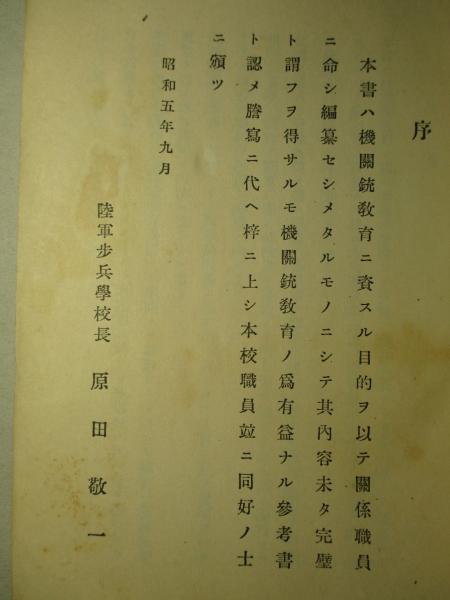 序
本書ハ機關銃敎育ニ資スル目的ヲ以テ關係職員
ニ命シ編纂セシメタルモノニシテ其內容未タ完璧
ト謂フヲ得サルモ機關銃敎育ノ爲有益ナル參考書
ト認メ謄寫ニ代ヘ梓ニ上シ本校職員竝ニ同好ノ士
ニ頒ツ
昭和五年九月
陸軍步兵學校長 原田敬一